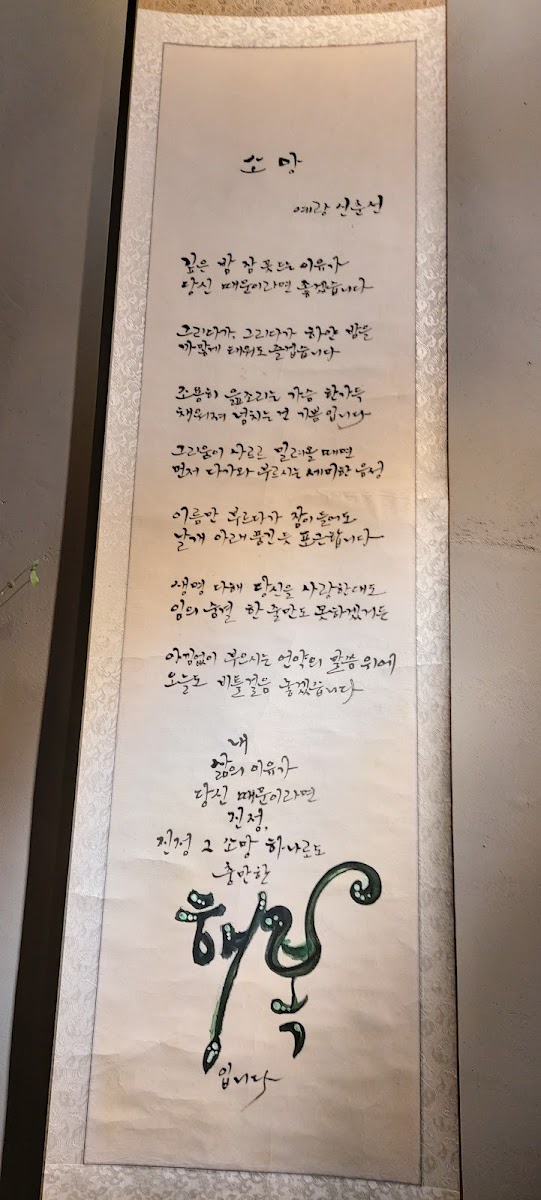 소망
예랑 신순선
깊은 밤 잠 못 드는 이유가
당신 때문이라면 좋겠습니다
그리다가, 그리다가 하얀 밤을
까맣게 태워도 즐겁습니다
조용히 읊조리는 가슴 한가득
채워져 넘치는 건 기쁨입니다
그리움이 사르르 밀려올 때면
먼저 다가와 부르시는 세미한 음성
이름만 부르다가 잠이 들어도
날개 아래 품긴 듯 포근합니다
생명 다해 당신을 사랑한대도
임의 숨결 한 줌만도 못하겠거든
아낌없이 부으시는 언약의 말씀 위에
오늘도 비틀걸음 놓겠습니다
내
삶의 이유가
당신 때문이라면
진정,
진정 그 소망 하나로도
충만한
행복
입니다